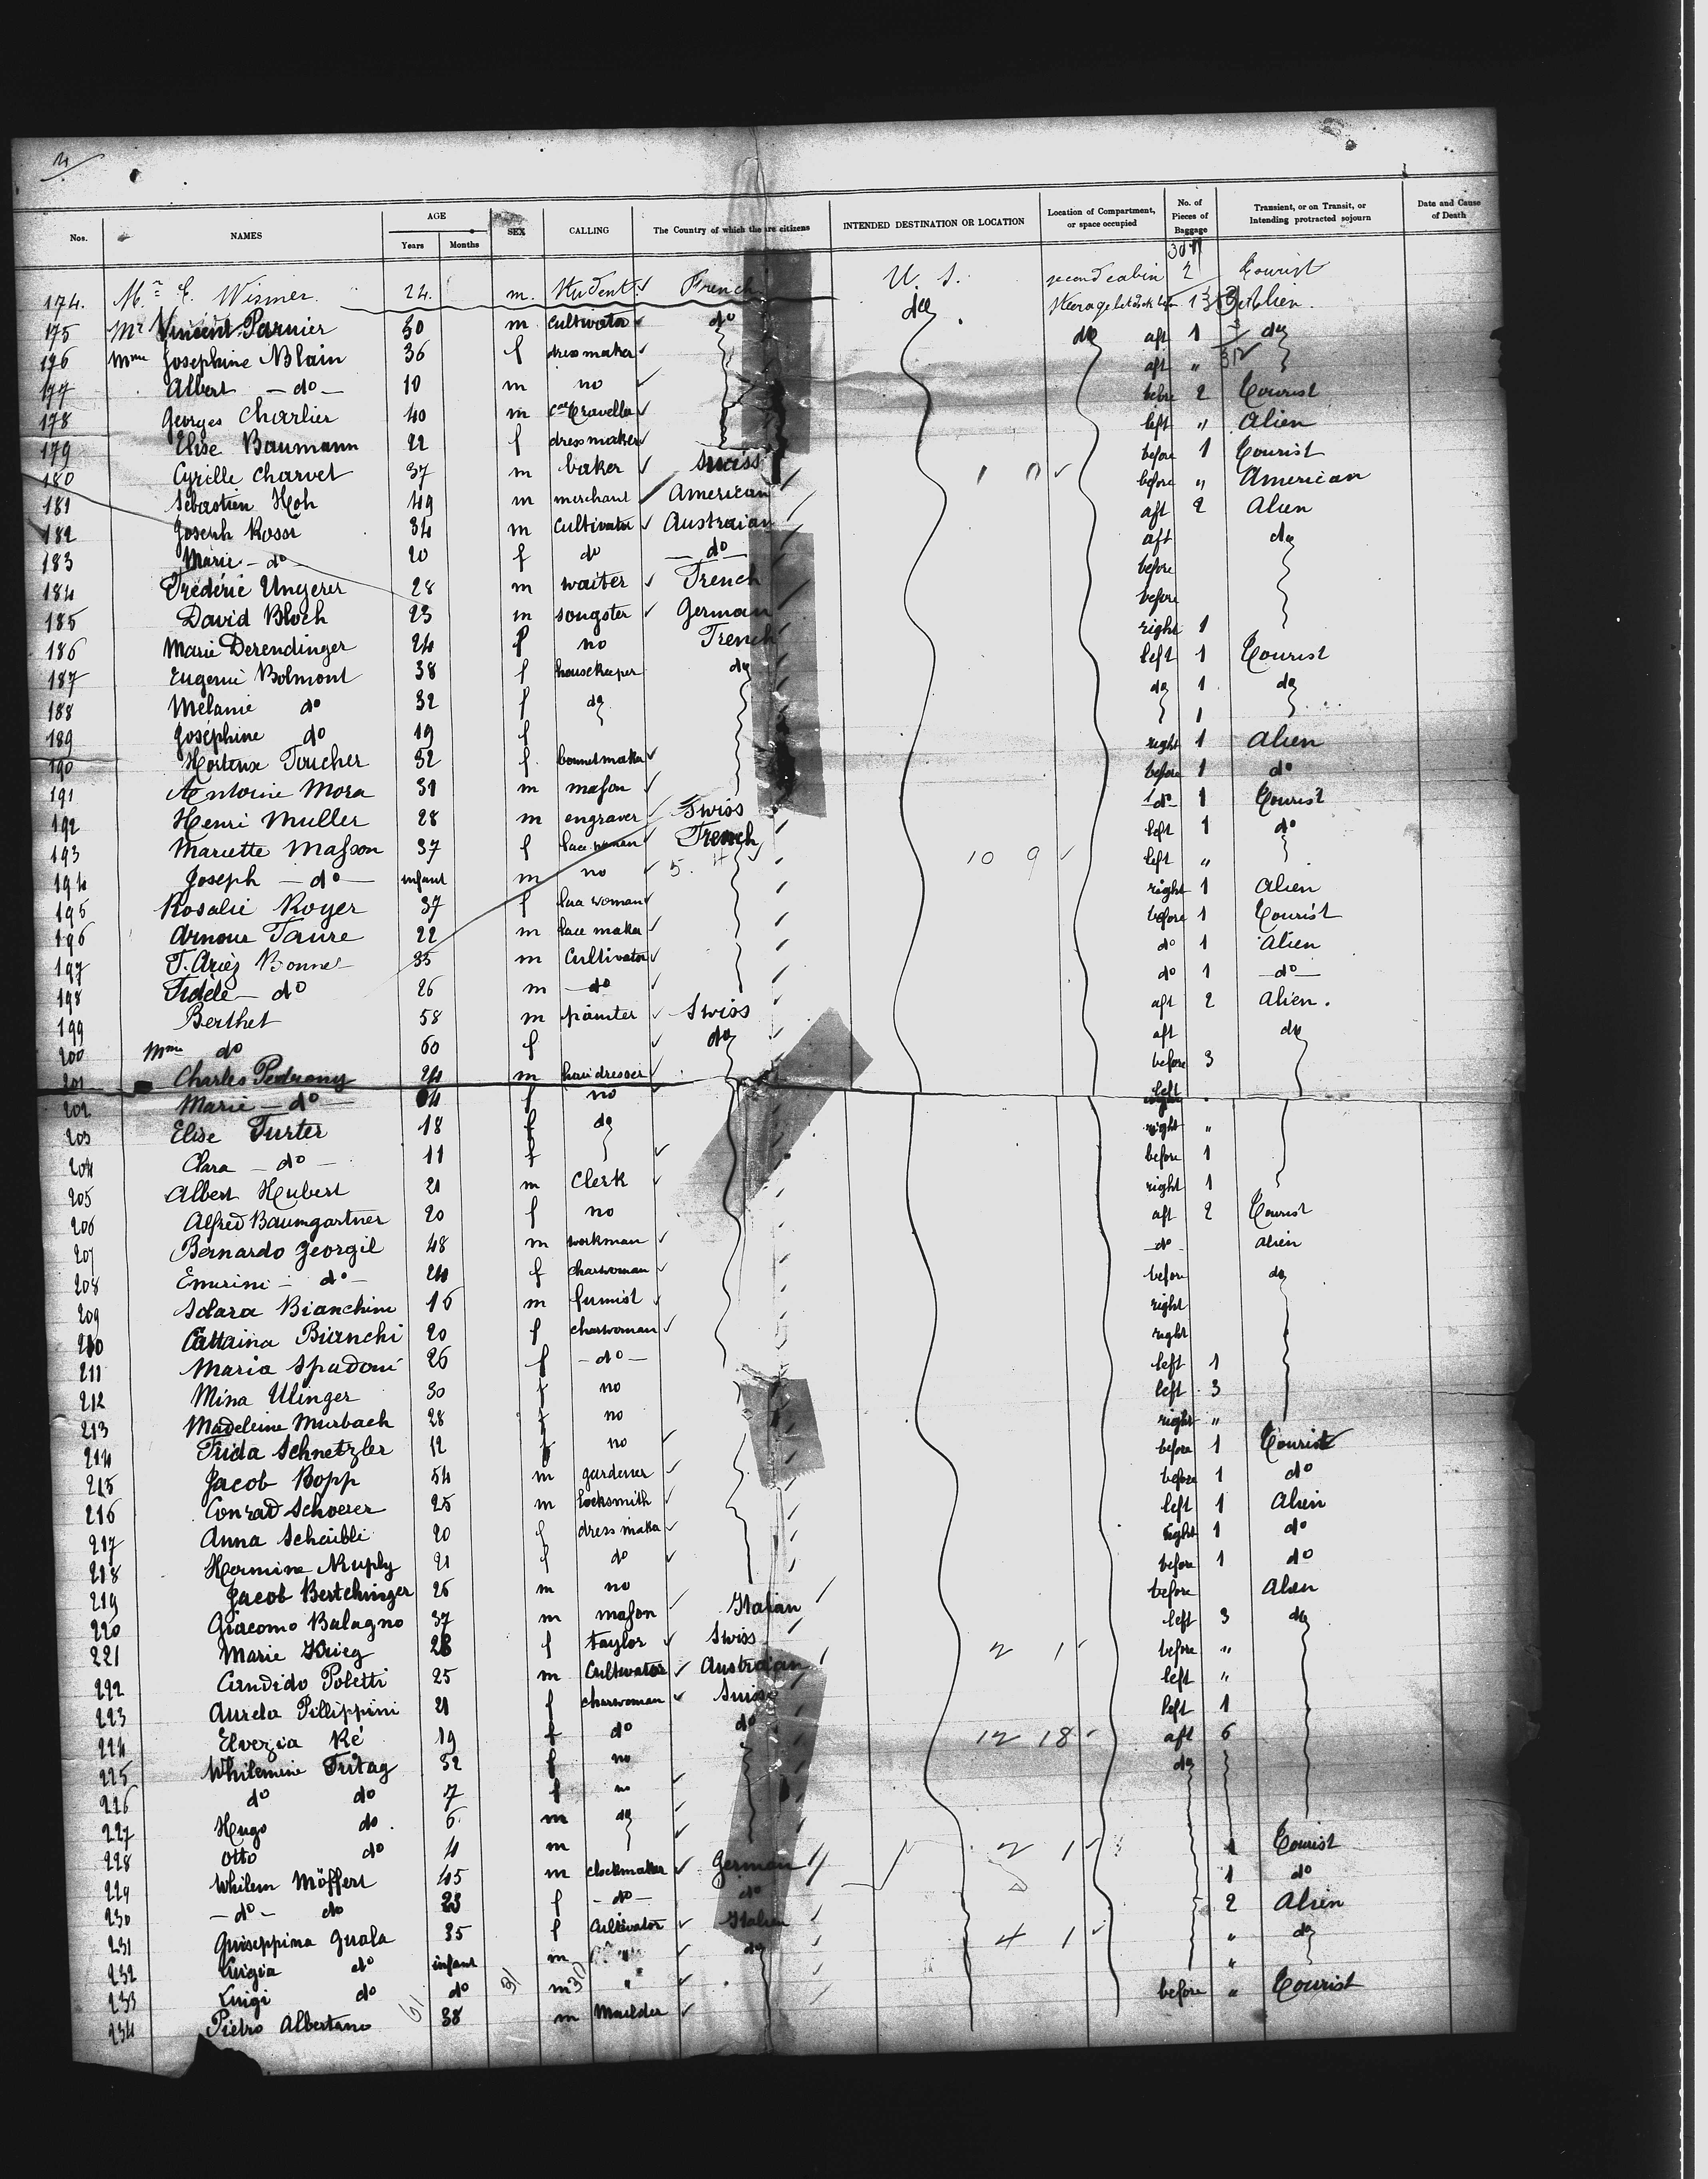 Nos. NAMES AGE Years Months SEX CALLING The Country of which the are citizens INTENDED DESTINATION OR LOCATION Location of Compartment, or space occupied No. of Pieces of Baggage Transient, or on Transit, or Intending protracted sojourn Date and Cause of Death
174. Mr E. Wismer. 24. m. Student French U. S. second cabin 2 Tourist
175 Mr Vincent Parnier 30 m cultivator do do Steerage 1 Alien
176 Mme Josephine Blain 36 f dressmaker do aft 1 do
177 Albert - do - 10 m no aft "
178 Georges Charlier 40 m Traveller before 2 Tourist
179 Elise Baumann 22 f dressmaker left " Alien
180 Cyrille Charvet 37 m baker Swiss before 1 Tourist
181 Sébastien Hoh 49 m merchant American before " American
182 Joseph Rossi 34 m cultivator Austraian aft 2 Alien
183 Marie - do - 20 f do - do - aft do
184 Frédéric Ungerer 28 m waiter French before
185 David Bloch 23 m songster German before
186 Marie Derendinger 24 f no French right 1
187 Eugenie Bolmont 38 f housekeeper do left 1 Tourist
188 Mélanie do 32 f do do 1 do
189 Joséphine do 19 f 1
190 Hortense Foucher 32 f. bonnetmaker right 1 Alien
191 Antoine Mora 31 m mason before 1 do
192 Henri Muller 28 m engraver Swiss do 1 Tourist
193 Mariette Masson 37 f lace woman French left 1 do
194 Joseph - do - infant m no left "
195 Rosalie Royer 37 f lace woman right 1 Alien
196 Arnoux Faure 22 m lace maker before 1 Tourist
197 F. Ariéz Bonnet 35 m Cultivator do 1 Alien
198 Fidèle - do 26 m - do do 1 - do -
199 Berthet 58 m painter Swiss aft 2 Alien.
200 Mme do 60 f do aft do
201 Charles Pedrony 24 m hairdresser before 3
202 Marie - do - f no left
203 Elise Furter 18 f do right "
204 Clara - do - 11 f before 1
205 Albert Hubert 21 m Clerk right 1
206 Alfred Baumgartner 20 f no aft 2 Tourist
207 Bernardo Georgil 48 m workman - do - alien
208 Emerini - do - 24 f charwoman before do
209 Solara Bianchini 16 m fumist right
210 Cattaina Bianchi 20 f charwoman right
211 Maria Spadoni 26 f - do - left 1
212 Mina Ulinger 30 f no left 3
213 Madeleine Murbach 28 f no right "
214 Frida Schnetzler 12 f no before 1 Tourist
215 Jacob Bopp 54 m gardener before 1 do
216 Conrad Schoerer 25 m locksmith left 1 Alien
217 Anna Scheibli 20 f dress maker right 1 do
218 Hermine Nuply 21 f do before 1 do
219 Jacob Bertchinger 26 m no before Alien
220 Giacomo Balagno 37 m mason Italian left 3 do
221 Marie Krieg 28 f taylor Swiss before "
222 Candido Poletti 25 m Cultivator Austraian left "
223 Aurela Pillippini 21 f charwoman Suiss left 1
224 Elvezia Ré 19 f do do aft 6
225 Whilemine Fritag 32 f no do
226 do do 7 f no
227 Hugo do 6 m do
228 Otto do 4 m 1 Tourist
229 Whilem Möffert 45 m clockmaker German 1 do
230 - do - do 23 f - do - do 2 Alien
231 Guiseppina Guala 35 f Cultivator Italien " do
232 Luigia do infant m " do "
233 Luigi do do m " before " Tourist
234 Pietro Albertano 38 m Moulder